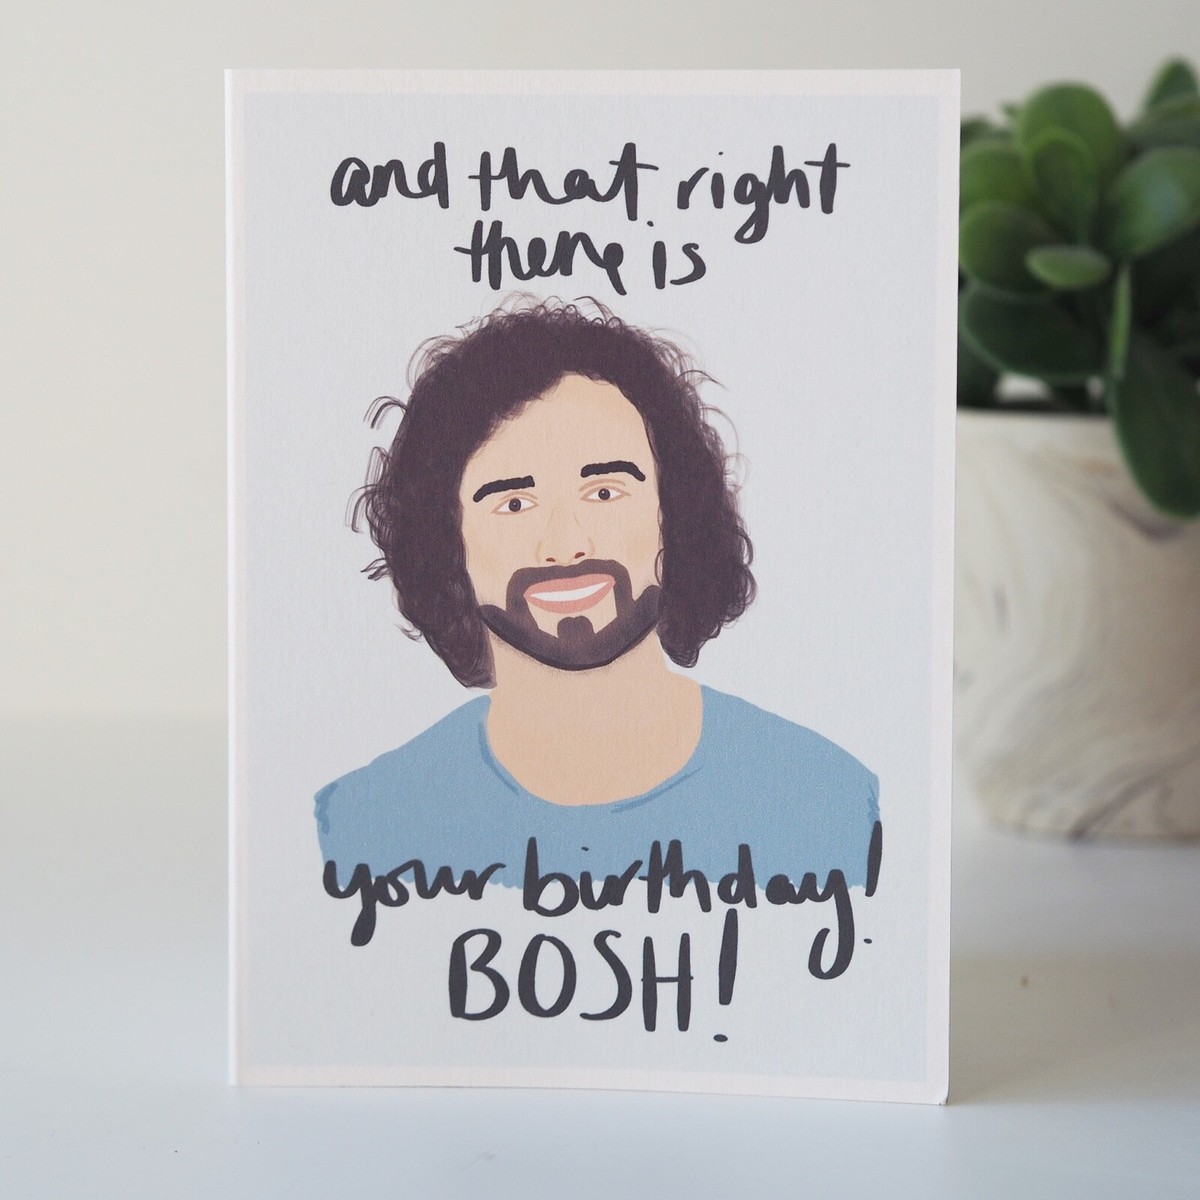 and that right
there is
your birthday!
BOSH!